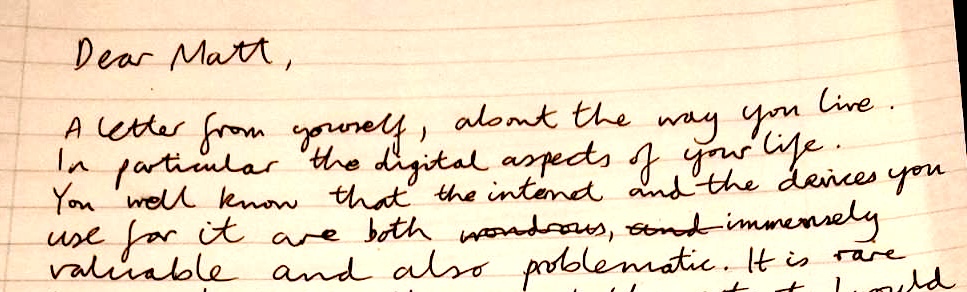 Dear Matt,
A letter from yourself, about the way you live.
In particular the digital aspects of your life.
You well know that the internet and the devices you
use for it are both wondrous, and immensely
valuable and also problematic. It is rare